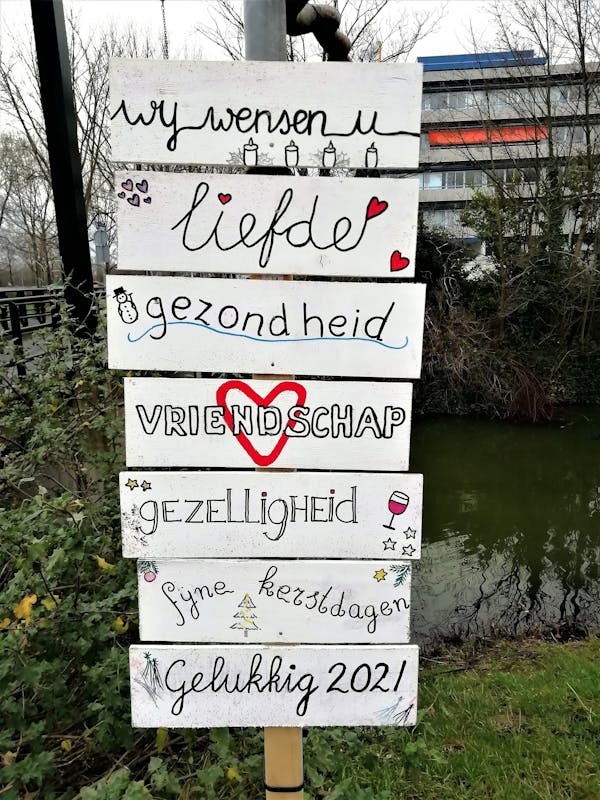 wy wensen u
liefde
gezondheid
VRIENDSCHAP
GEZELLIGHEID
fyne kerstdagen
Gelukkig 2021